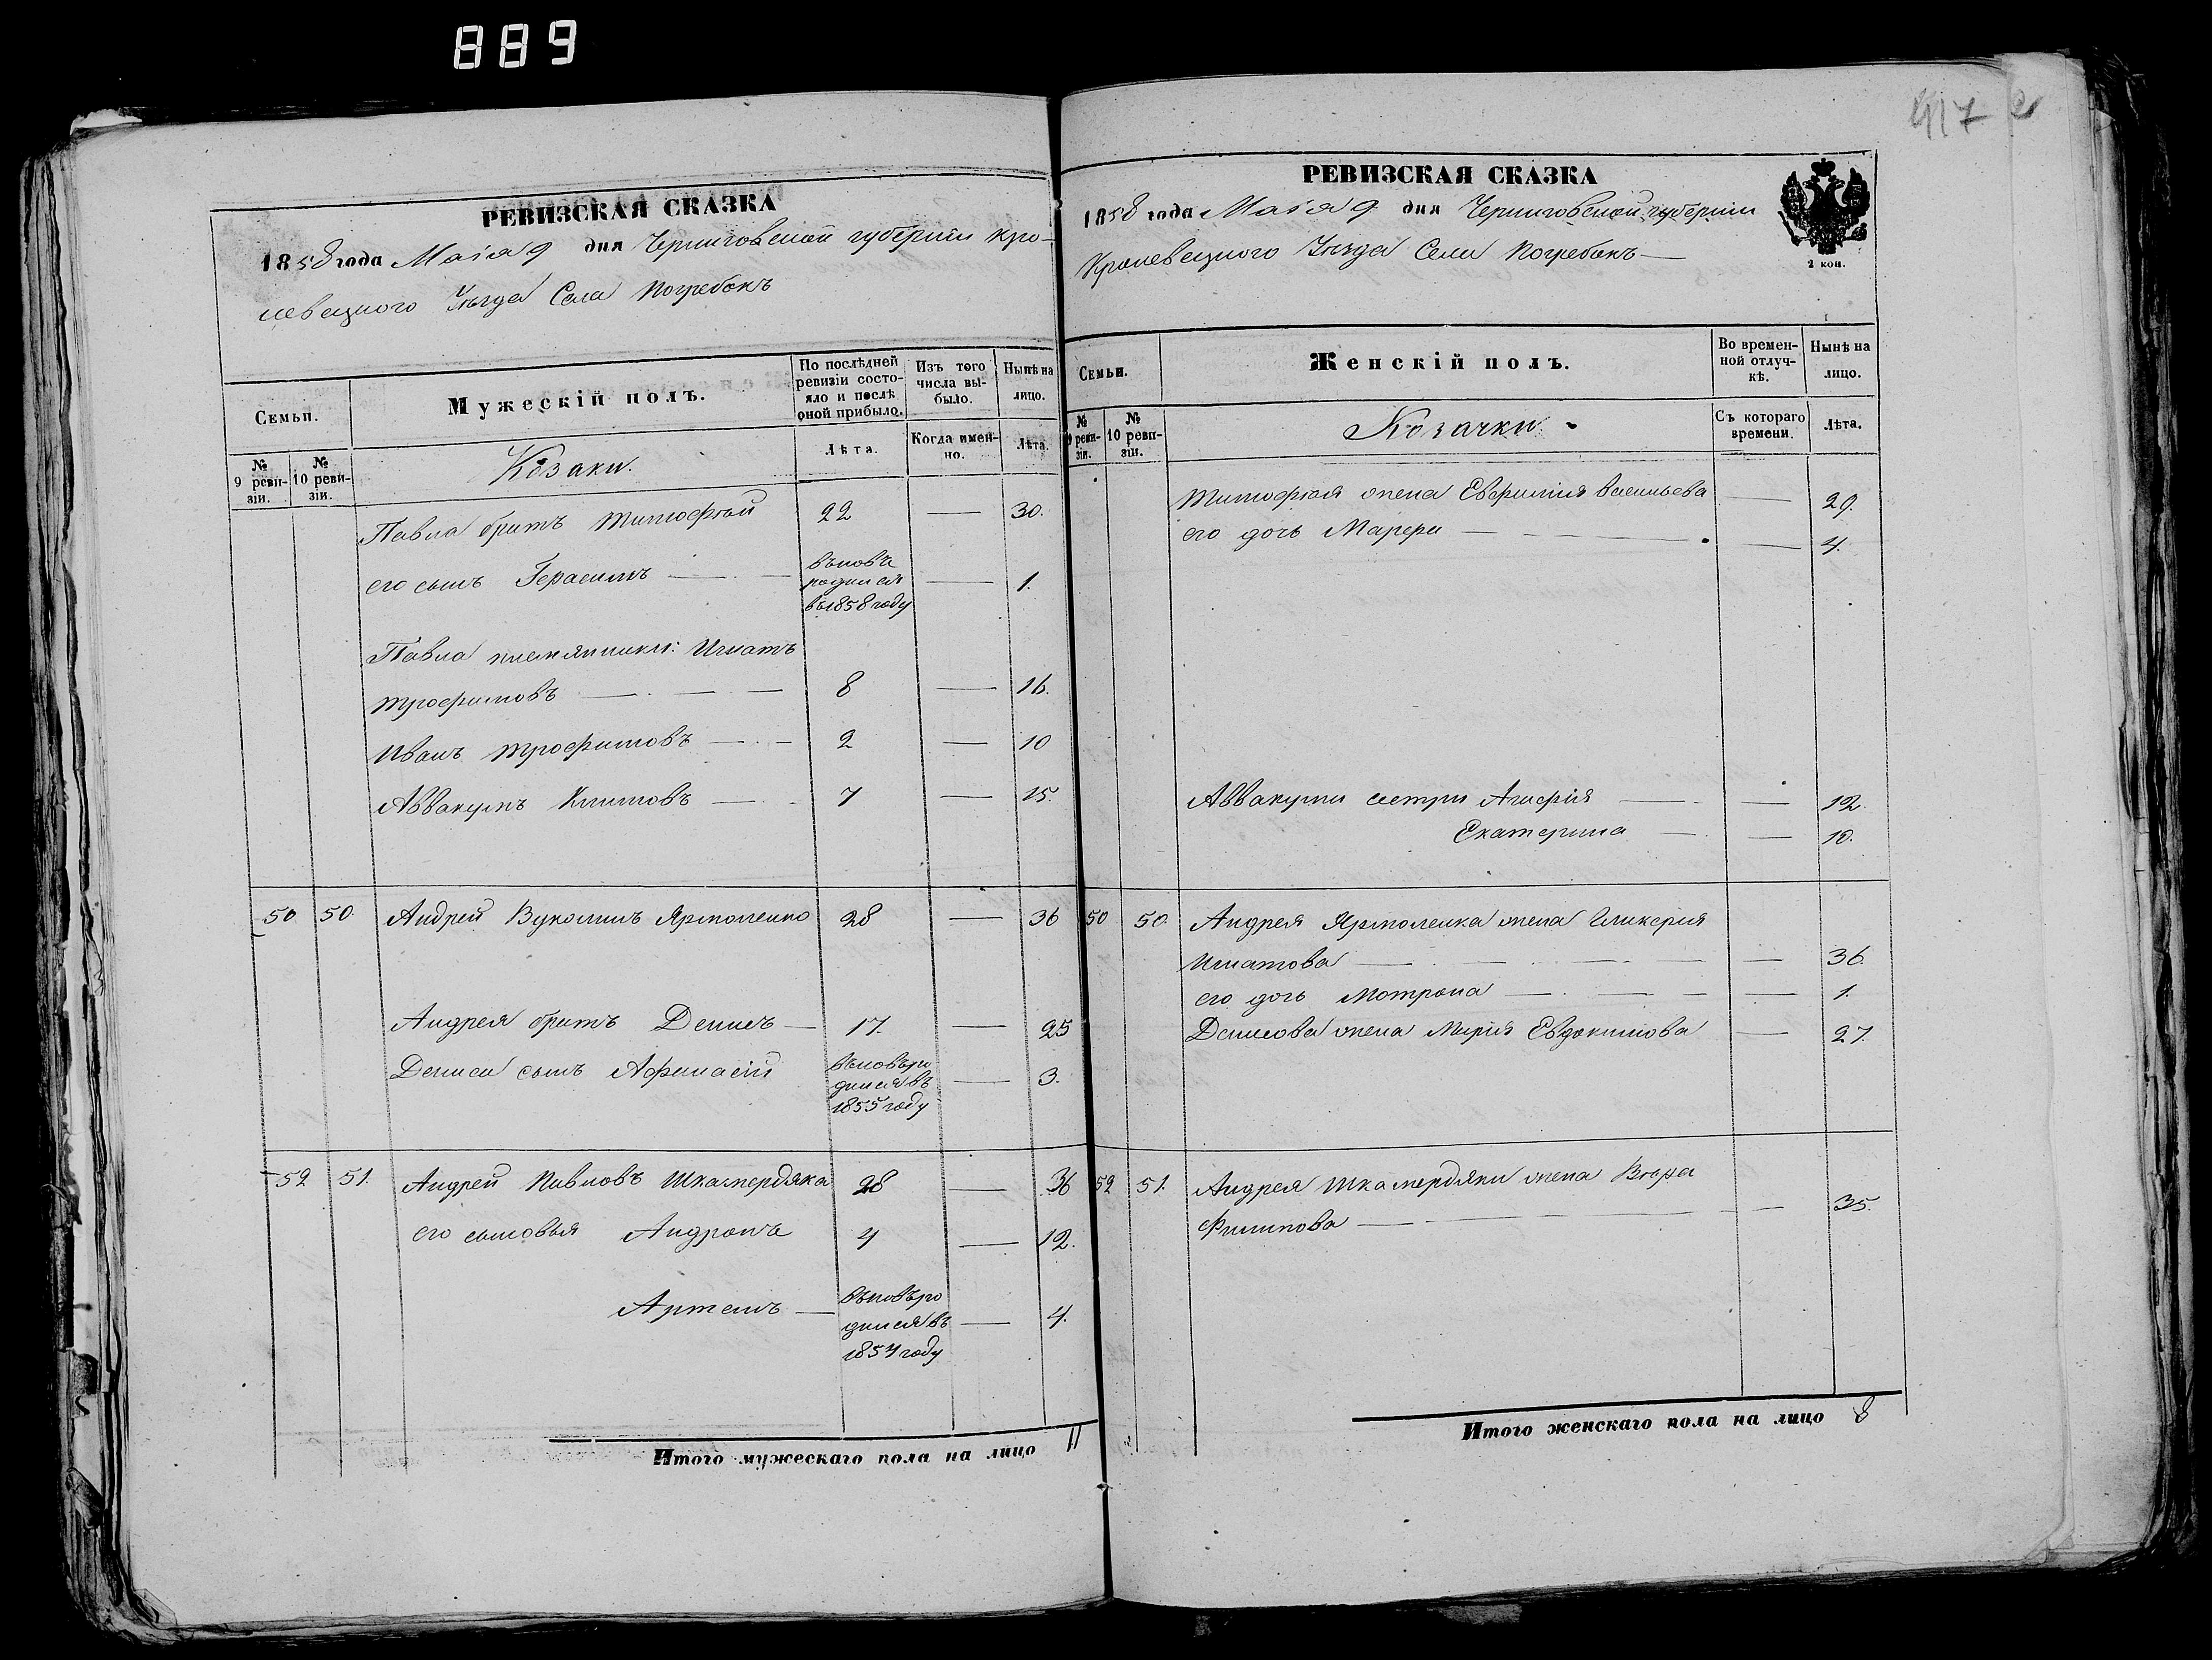 889
417
РЕВИЗСКАЯ СКАЗКА
1858 года Маія 9 дня Черниговской губерніи Кро-
левецкого Уѣзда Села Погребокъ
Семьи.
Мужескій полъ.
По послѣдней ревизіи состояло и послѣ оной прибыло.
Изъ того числа выбыло.
Нынѣ на лицо.
№ 9 ревизіи.
№ 10 ревизіи.
Козаки.
Лѣта.
Когда именно.
Лѣта.
Павла братъ Тимофей 22 — 30.
его сынъ Герасимъ — вновь родился въ 1858 году — 1.
Павла племянники: Игнатъ
Трофимовъ — 8 — 16.
Иванъ Трофимовъ — 2 — 10
Аввакумъ Климовъ — 7 — 15.
50 50 Андрей Вуколовъ Ярмоленко 28 — 36
Андрея братъ Денисъ — 17. — 25
Дениса сынъ Афанасій вновь родился въ 1855 году — 3.
52 51. Андрей Павловъ Шкамердяка 28 — 36
его сыновья Андронъ 4 — 12.
Артемъ — вновь родился въ 1854 году — 4.
Итого мужескаго пола на лицо 11
РЕВИЗСКАЯ СКАЗКА
1858 года Маія 9 дня Черниговской губерніи
Кролевецкого Уѣзда Села Погребокъ —
2 коп.
Семьи.
Женскій полъ.
Во временной отлучкѣ.
Нынѣ на лицо.
№ 9 ревизіи.
№ 10 ревизіи.
Козачки.
Съ котораго времени.
Лѣта.
Тимофея жена Евфимія Васильева — 29.
его дочь Марфа — 4.
Аввакума сестры Агафія — 12.
Екатерина — 10.
50 50. Андрея Ярмоленка жена Гликерія
Игнатова — 36.
его дочь Мотрона — 1.
Денисова жена Марія Евдокимова — 27.
52 51. Андрея Шкамердяки жена Вѣра
Филипова — 35.
Итого женскаго пола на лицо 8